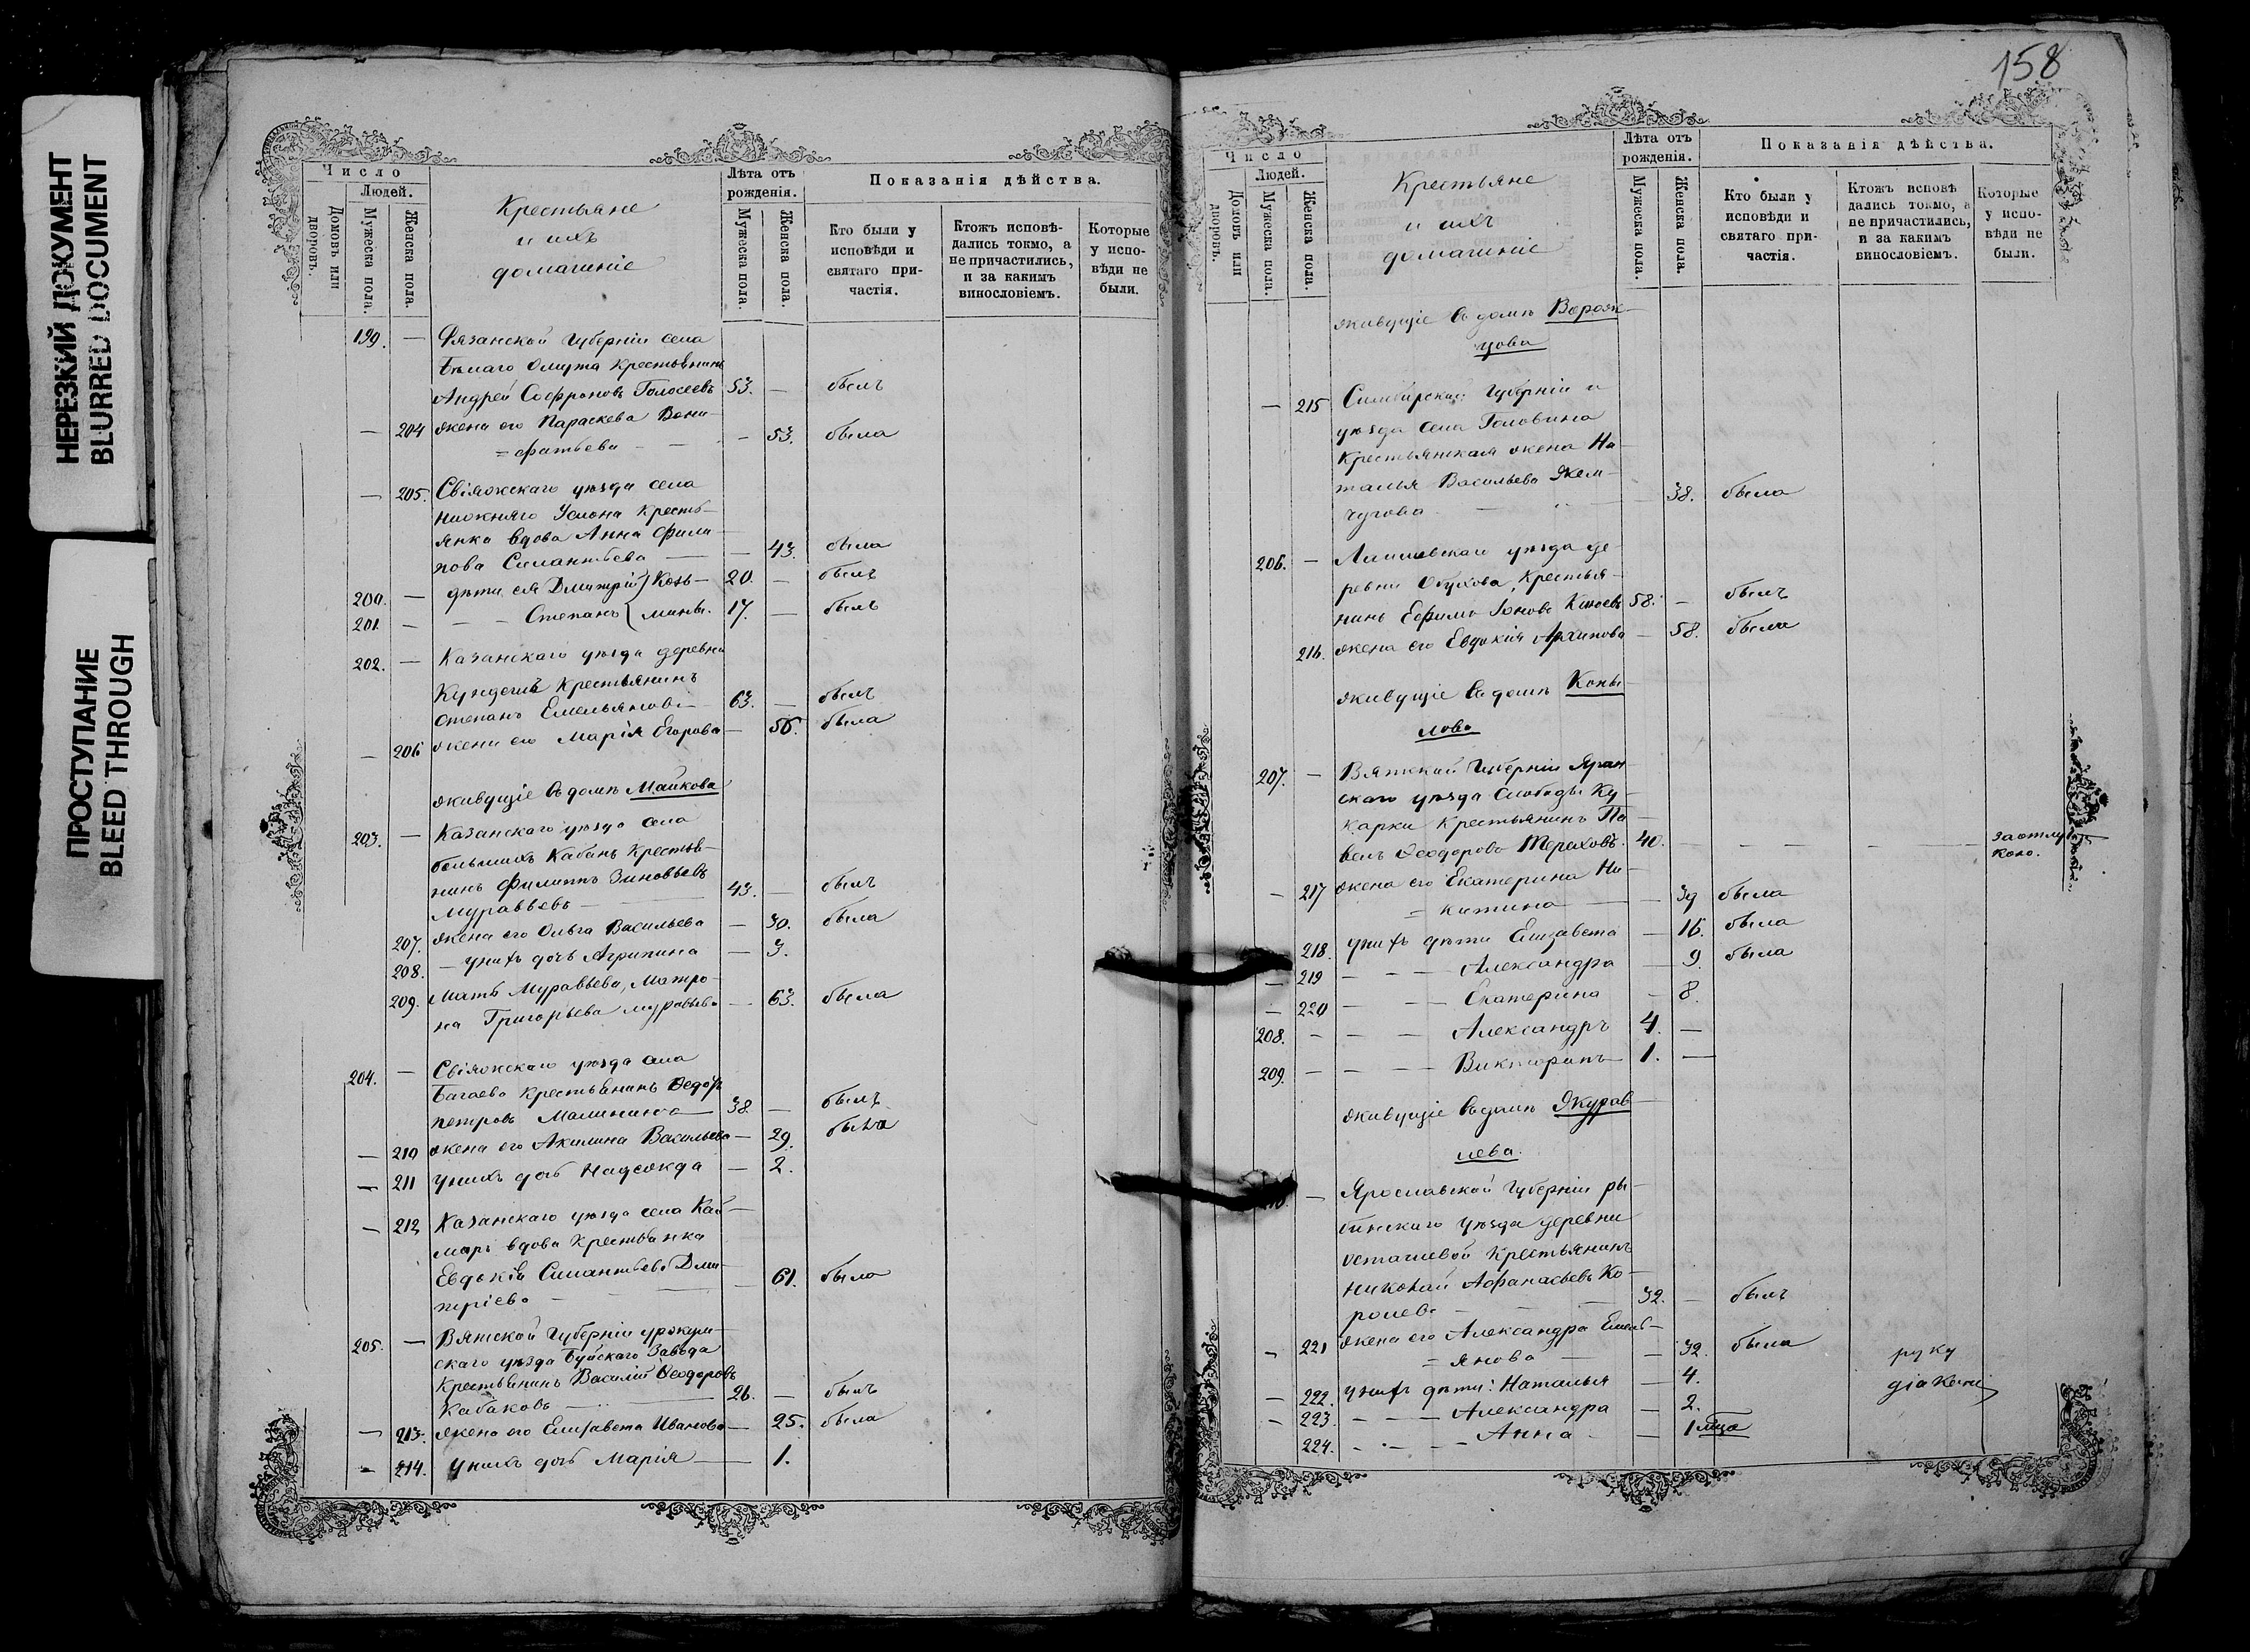 НЕРЕЗКИЙ ДОКУМЕНТ
BLURRED DOCUMENT
ПРОСТУПАНИЕ
BLEED THROUGH
Число
Людей.
Домовъ или дворовъ.
Мужеска пола.
Женска пола.
Крестьяне
и ихъ
домашніе
Лѣта отъ рожденія.
Мужеска пола
Женска пола.
Показанія дѣйства.
Кто были у исповѣди и святаго причастія.
Ктожъ исповѣдались токмо, а не причастились, и за какимъ винословіемъ.
Которые у исповѣди не были.
199. — Рязанской Губерніи села
Бѣлаго Омута Крестьянинъ
Андрей Софроновъ Голосеевъ 53. — былъ
— 204 жена его Параскева Вони-
=фатьева — — 53. была
— 205. Свіяжскаго уѣзда села
Нижняго Услона Кресть-
янка вдова Анна Фили-
пова Силантьева — — 43. была
200. — дѣти ея Дмитрій Козь- 20. — былъ
201 — — — Степанъ мины. 17. — былъ
202. — Казанскаго уѣзда деревни
Крестьянинъ
Степанъ Емельяновъ 63. — былъ
— 206 жена его Марія Егорова — 56. была
живущіе въ домѣ Майкова
203. — Казанскаго уѣзда села
большихъ Кабанъ Крестья-
нинъ Филиппъ Зиновьевъ
Муравьевъ — 43. — былъ
207. жена его Ольга Васильева — 30. была
208. — у нихъ дочь Агрипина — 3.
209. Мать Муравьева, Матро-
на Григорьева Муравьева — 63. была
204. — Свіяжскаго уѣзда села
Багаева Крестьянинъ Ѳедоръ
Петровъ Малининъ — 38 — былъ
— 210 жена его Акилина Васильева — 29. была
— 211 у нихъ дочь Надежда — 2.
— 212 Казанскаго уѣзда села Кай-
маръ вдова Крестьянка
Евдокія Силантьева Дми-
тріева — — 61. была
205. — Вятской Губерніи Уржум-
скаго уѣзда Буйскаго Завода
Крестьянинъ Василій Ѳеодоровъ
Кабаковъ — 26. — былъ
— 213. жена его Елизавета Иванова — 25. была
— 214. у нихъ дочь Марія — — 1.
158
Число
Людей.
Домовъ или дворовъ.
Мужеска пола.
Женска пола.
Крестьяне
и ихъ
домашніе
Лѣта отъ рожденія.
Мужеска пола.
Женска пола.
Показанія дѣйства.
Кто были у исповѣди и святаго причастія.
Ктожъ исповѣдались токмо, а не причастились, и за какимъ винословіемъ.
Которые у исповѣди не были.
живущіе въ домѣ Ворож-
цова
— 215 Симбирской Губерніи и
уѣзда села Головина
Крестьянская жена На-
талья Васильева Жем-
чугова — — 38. была
206. — Лаишевскаго уѣзда де-
ревни Обухова, Крестья-
нинъ Ефимъ Іоновъ 58. — былъ
216. жена его Евдокія Архипова — 58. была
живущіе въ домѣ Копы-
лова
207. — Вятской Губерніи Яран-
скаго уѣзда Слободы Ку-
карки Крестьянинъ Па-
велъ Ѳеодоровъ Тереховъ. 40. — — — — за отлуч-
кою.
— 217 жена его Екатерина Ни-
=китина — — 39 была
218. у нихъ дѣти Елизавета — 16. была
— 219 — — — Александра — 9. была
— 220 — — — Екатерина — 8.
208. — — — Александръ 4. —
209. — — — Викторинъ 1. —
живущіе въ домѣ Журав-
лева.
210. — Ярославской Губерніи ры-
бинскаго уѣзда деревни
Осташевой Крестьянинъ
Николай Афанасьевъ Ко-
ролевъ — — 32. — былъ
— 221 жена его Александра Емель-
=янова — — 32. была
— 222. у нихъ дѣти: Наталья — 4.
— 223. — — — Александра — 2.
224. — — — Анна — — 1 мца
руку
діаконъ